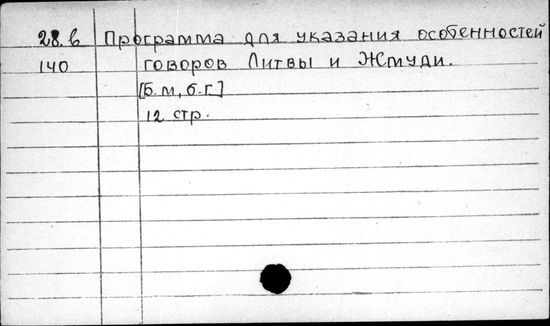 28.в Программа для указания особенностей
140 говоров Литвы и Жмуди.
[б.м, б.г.]
12 стр.